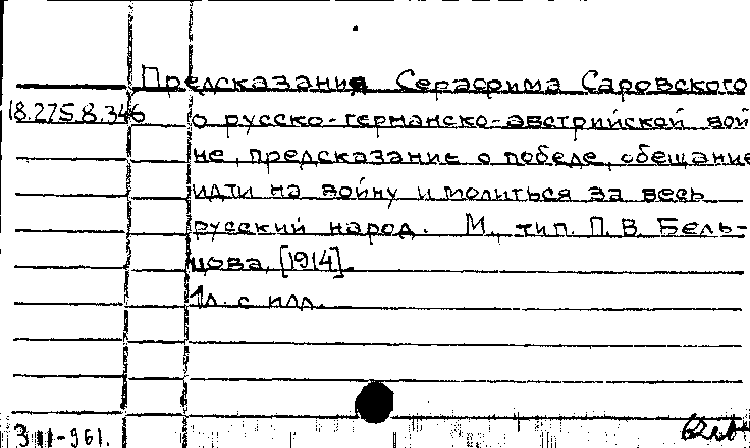 Предсказания Серафима Саровского
18.275.8.346 о русско-германско-австрийской вой
не, предсказание о победе, обещание
идти на войну и молиться за весь
русский народ. М., тип. П. В. Бель-
цова, [1914].
1л. с илл.
3 III-961.